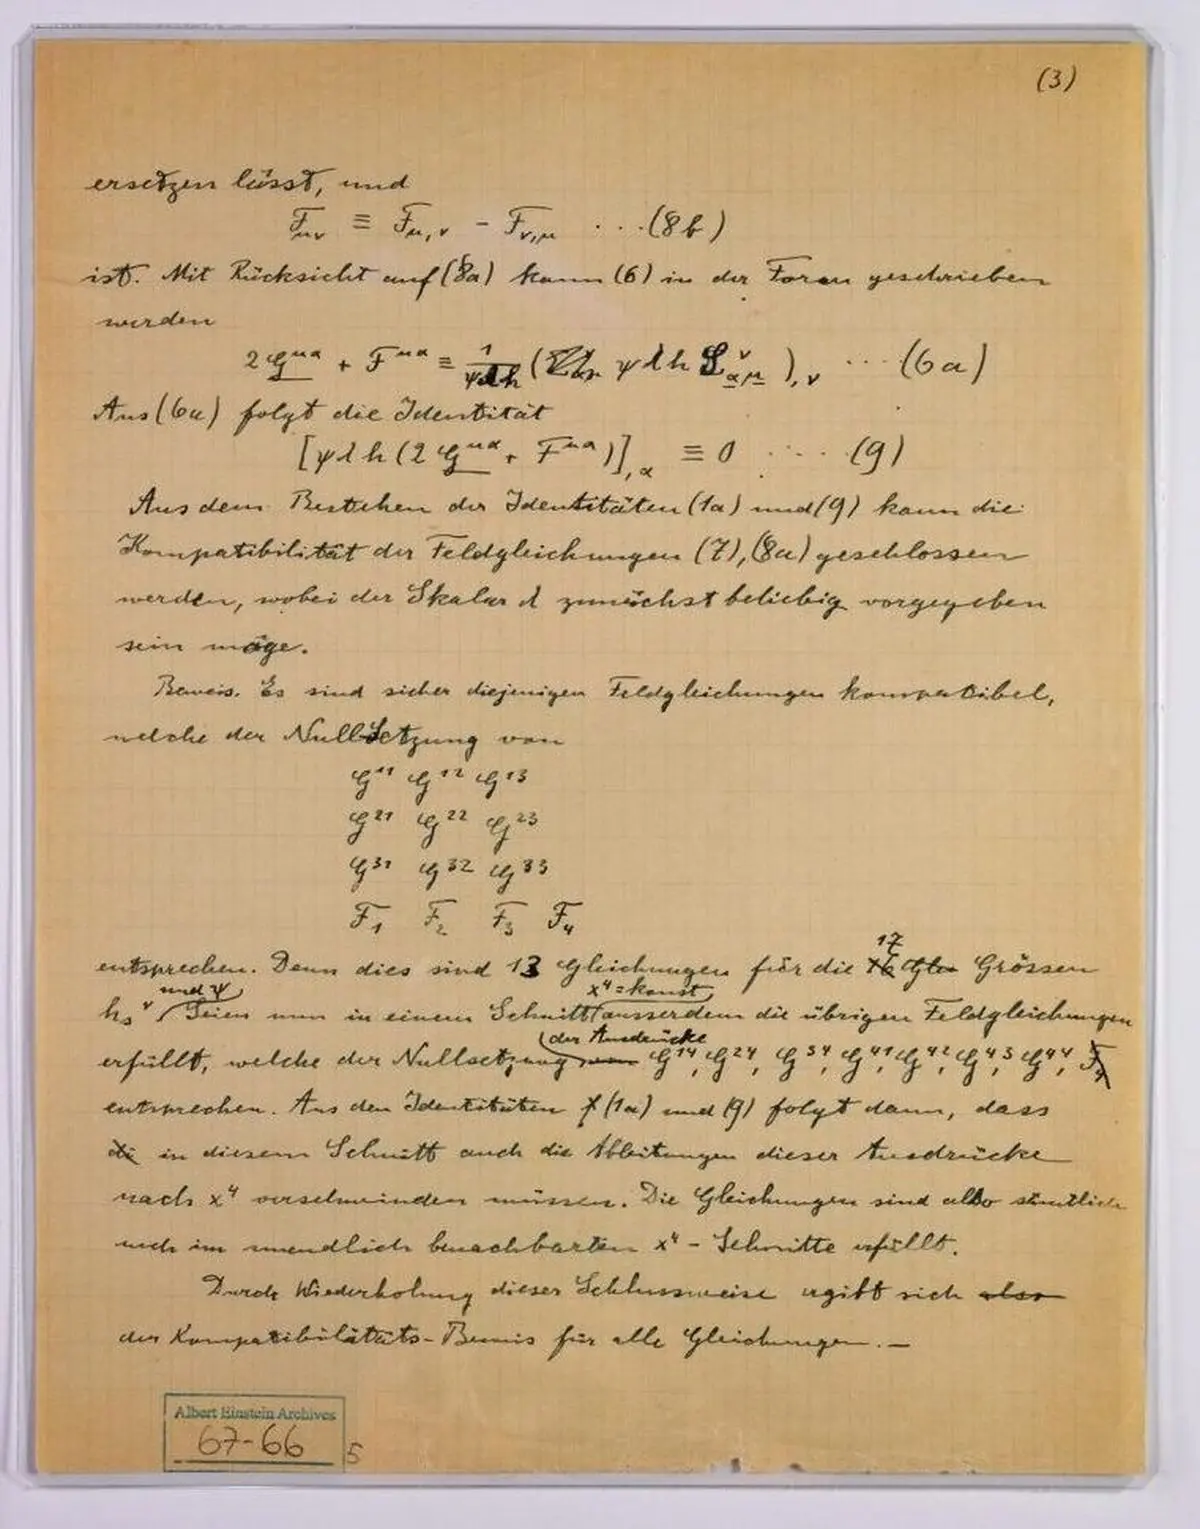 (3)
ersetzen lässt, und
F_μν ≡ F_μ,ν - F_ν,μ ...(8b)
ist. Mit Rücksicht auf (8a) kann (6) in der Form geschrieben
werden
2 G^μα + F^μα ≡ 1/ψλh ( ψ λ h L^ν_αμ ),ν ...(6a)
Aus (6a) folgt die Identität
[ψ λ h (2 G^μα + F^μα)],α ≡ 0 .... (9)
Aus dem Bestehen der Identitäten (1a) und (9) kann die
Kompatibilität der Feldgleichungen (7), (8a) geschlossen
werden, wobei der Skalar λ zunächst beliebig vorgegeben
sein möge.
Beweis. Es sind sicher diejenigen Feldgleichungen kompatibel,
welche der Nullsetzung von
G^11 G^12 G^13
G^21 G^22 G^23
G^31 G^32 G^33
F_1 F_2 F_3 F_4
17
entsprechen. Denn dies sind 13 Gleichungen für die 16 Grössen
und ψ x^4 = konst
h_s^ν Seien nun in einem Schnitt ausserdem die übrigen Feldgleichungen
der Ausdrücke
erfüllt, welche der Nullsetzung von G^14, G^24, G^34, G^41, G^42, G^43, G^44,
entsprechen. Aus den Identitäten (1a) und (9) folgt dann, dass
di in diesem Schnitt auch die Ableitungen dieser Ausdrücke
nach x^4 verschwinden müssen. Die Gleichungen sind also sämtlich
auch im unendlich benachbarten x^4 - Schnitte erfüllt.
Durch Wiederholung dieser Schlussweise ergibt sich also
der Kompatibilitäts-Beweis für alle Gleichungen. —
Albert Einstein Archives
67-66
5